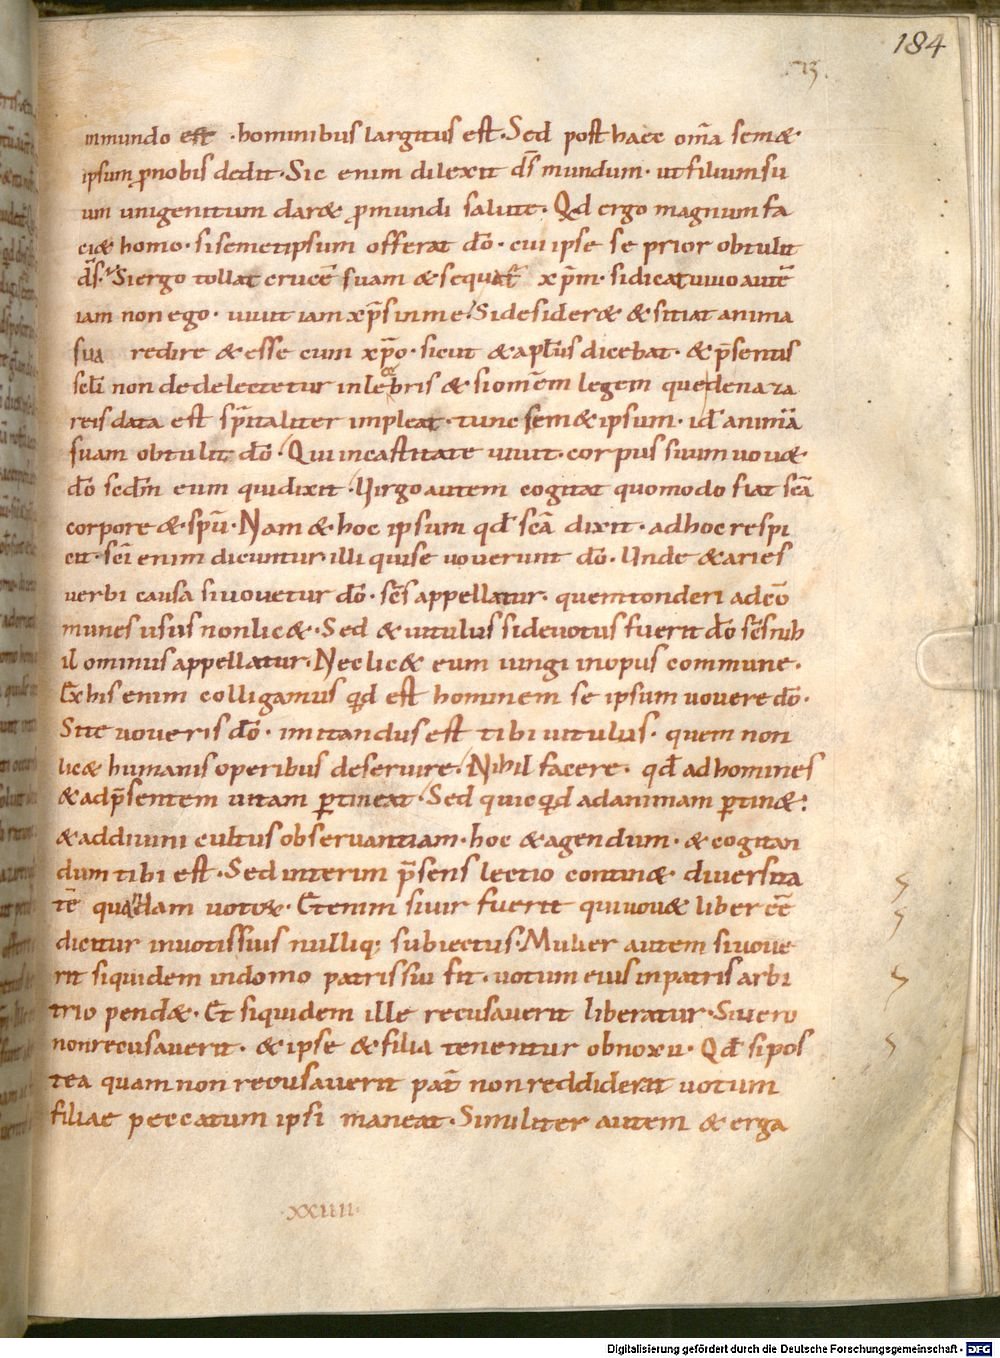 184
inmundo est · hominibus largitus est · Sed post haec om̄a sem&
ipsum ꝓnobis dedit · Sic enim dilexit d̄s mundum · ut filium su
um unigenitum dar& ꝓmundi salute · Qd ergo magnum fa
ci& homo · si semetipsum offerat dō · cui ipse se prior obtulit
d̄s · Si ergo tollat crucē suam & sequat̄ xp̄m · si dicat uiuo autē
iam non ego · uiuit iam xp̄s in me · Si desider& & sitiat anima
sua redire & esse cum xp̄o · sicut & apl̄us dicebat · & p̄sentis
scl̄i non delectetur inlecebris & si omēm legem que de naza
reis data est sp̄italiter impleat · tunc sem&ipsum · id ē animā
suam obtulit dō · Qui in castitate uiuit · corpus suum uou&
dō scdm̄ eum qui dixit · Virgo autem cogitat quomodo fiat scā
corpore & sp̄u · Nam & hoc ipsum qd̄ scā dixit · ad hoc respi
cit · sc̄i enim dicuntur illi qui se uouerunt dō · Unde & aries
uerbi causa si uouetur dō · sc̄s appellatur · quem tonderi ad cō
munes usus non lic& · Sed & uitulus si deuotus fuerit dō sc̄s nih
il ominus appellatur · Nec lic& eum iungi in opus commune ·
Ex his enim colligamus qd est hominem se ipsum uouere dō ·
Si te uoueris dō · imitandus est tibi uitulus · quem non
lic& humanis operibus deseruire · Nihil facere · qd̄ ad homines
& ad p̄sentem uitam ꝑtineat · Sed quicqd ad animam ꝑtin&
& ad diuini cultus obseruantiam · hoc & agendum · & cogitan
dum tibi est · Sed interim p̄sens lectio contin& diuersita
tē quandam uoti · Etenim si uir fuerit qui uou& liber eē
dicitur in uotis suis nulliq; subiectus · Mulier autem si uoue
rit siquidem in domo patris sui sit · uotum eius in patris arbi
trio pend& · Et siquidem ille recusauerit liberatur · Si uero
non recusauerit · & ipse & filia tenentur obnoxii · Qd̄ si pos
tea quam non recusauerit pat̄ non reddiderit uotum
filiae peccatum ipsi maneat · Similiter autem & erga
·xxiiii·
Digitalisierung gefördert durch die Deutsche Forschungsgemeinschaft - DFG